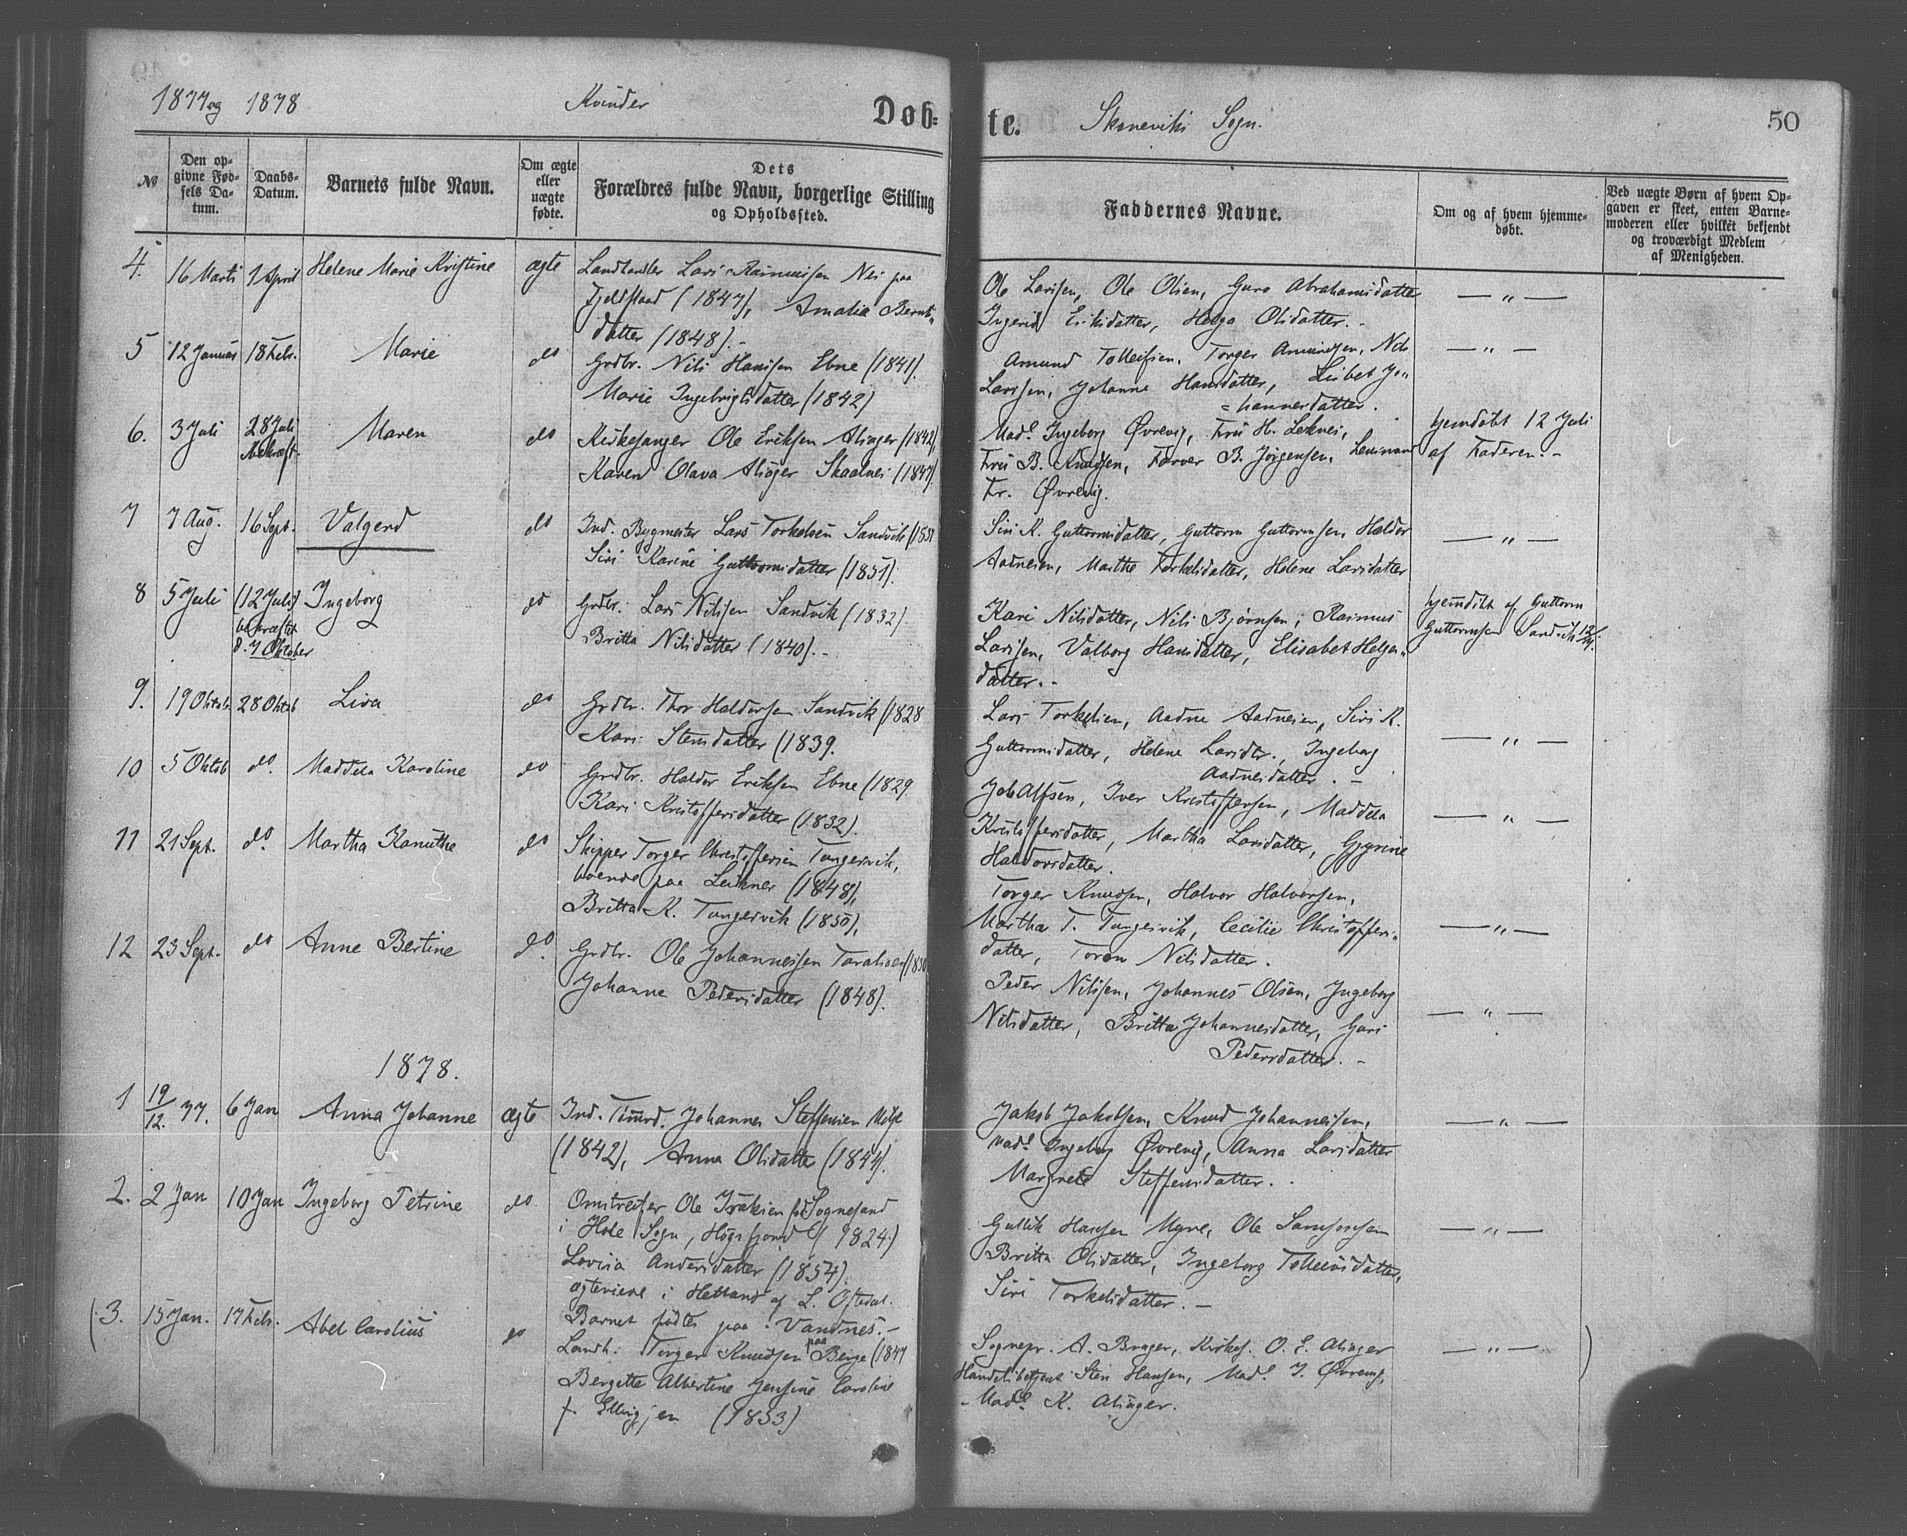 1877 og 1878 Kvinder Døb-
te. Skoneviks Sogn. 50
No
Den op-
givne Fød-
sels Da-
tum.
Daabs-
Datum.
Barnets fulde Navn.
Om ægte
eller
uægte
fødte.
Dets
Forældres fulde Navn, borgerlige Stilling
og Opholdssted.
Faddernes Navne.
Om og af hvem hjemme-
døbt.
Ved uægte Børn af hvem Op-
gaven er skeet, enten Barne-
moderen eller hvilket bekjendt
og troværdigt Medlem
af Menigheden.
4. 16 Marts 1 April Helene Marie Kristine ægte
Landhandler Lars Rasmussen Nes paa
Fjeldstaad (1847), Amalia Bernts-
datter (1848).-
Ole Larssen, Ole Olsen, Guro Abrahamsdatter
Ingerid Eriksdatter, Helga Olsdatter.-
— " —
5 12 Januar 18 Febr. Marie do
Grdbr. Nils Hanssen Ebne (1841).
Marie Ingebrigtsdatter (1842)
Amund Tolleifsen, Torger Amundsen, Nils
Larssen, Johanne Hansdatter, Lisbet Jo-
=hannesdatter.
— " —
6. 3 Juli 28 Juli Maren do
Kirkesanger Ole Eriksen Alsager (1842),
Karen Olava Alsager Skaalnes (1847).
Madl Ingeborg Øvrevig, Fru H. Leknes,
Fru B. Knudsen, Farver B. Jørgensen, Lensmand
Fr. Øvrevig.
hjemdøbt 12 Juli
af Faderen.-
7 7 Aug. 16 Sept. Valgerd do
Ind. Bygmester Lars Torkelsen Sandvik (185
Siri Karine Guttormsdatter (1851).
Siri K. Guttormsdatter, Guttorm Guttormsen, Haldor
Aadnesen, Marthe Torkelsdatter, Helene Larsdatter
— " —
8 5 Juli (12 Juli) Ingeborg do
bekræftet
d. 7 Oktober
Grdbr. Lars Nilssen Sandvik (1832).
Britta Nilsdatter (1840).-
Kari Nilsdatter, Nils Bjørnsen, Rasmus
Larssen, Valborg Hansdatter, Elisabet Helges-
datter.-
hjemdøbt af Guttorm
Guttormsen Sandvik
9. 19 Oktob 28 Oktob Liva do
Grdbr. Thor Haldorsen Sandvik (1828
Kari Stensdatter (1839.
Lars Torkelsen, Aadne Aadnesen, Siri K.
Guttormsdatter, Helene Larsdtr., Ingeborg
Aadnesdatter.-
— " —
10 5 Oktob do. Maddela Karoline do
Grdbr. Haldor Eriksen Ebne (1829.
Kari Kristoffersdatter (1832).
Job Alfsen, Iver Kristoffersen, Maddela
Kristoffersdatter, Martha Larsdatter, Gjyrine
Haldorsdatter.
— " —
11 21 Sept. do. Martha Kanuthe do
Skipper Torger Christoffersen Tungesvik,
boende paa Leknes (1848),
Britta K. Tungesvik (1850),
Torger Knudsen, Halvor Halvorsen,
Martha T. Tungesvik, Cecilie Christoffers-
datter, Toron Nilsdatter.
— " —
12 23 Sept. do Anne Bertine do.
Grdbr. Ole Johannessen Taraldsøen (1850
Johanne Pedersdatter (1848).
Peder Nilssen, Johannes Olsen, Ingeborg
Nilsdatter, Britta Johannesdatter, Guri
Pedersdatter.-
— " —
1878.
1 19/12 77. 6 Jan Anna Johanne ægte
Ind. Tømrd. Johannes Steffensen Milje
(1842), Anna Olsdatter (1844).
Jakob Jakobsen, Knud Johannessen,
Madl Ingeborg Øvrevig, Anna Larsdatter
Margrete Steffensdatter.
— " —
2. 2 Jan 10 Jan Ingeborg Petrine do
Omstreifer Ole Isaksen fød Sognesand
i Hole Sogn, Høgsfjord (1824)
Lovisa Andersdatter (1854).
ægteviede i Hetland af L. Oftedal.
Barnet fødtes paa Vandnes.-
Gullik Hansen Myre, Ole Samsonsen
Britta Olsdatter, Ingeborg Tolleivsdatter,
Siri Torkelsdatter.-
— " —
(3. 15 Jan. 17 Febr. Abel Carolius do
Landh. Torger Knudsen paa Berge (1847
Bergitte Albertine Jensine Caroline
f. Ellingsen (1853)
Sognepr. A. Brager, Kirkes. O. E. Alsager
Handelsbetjent Sten Hansen, Madl. I. Øvrevig,
Madl. K. Alsager.
— " — )